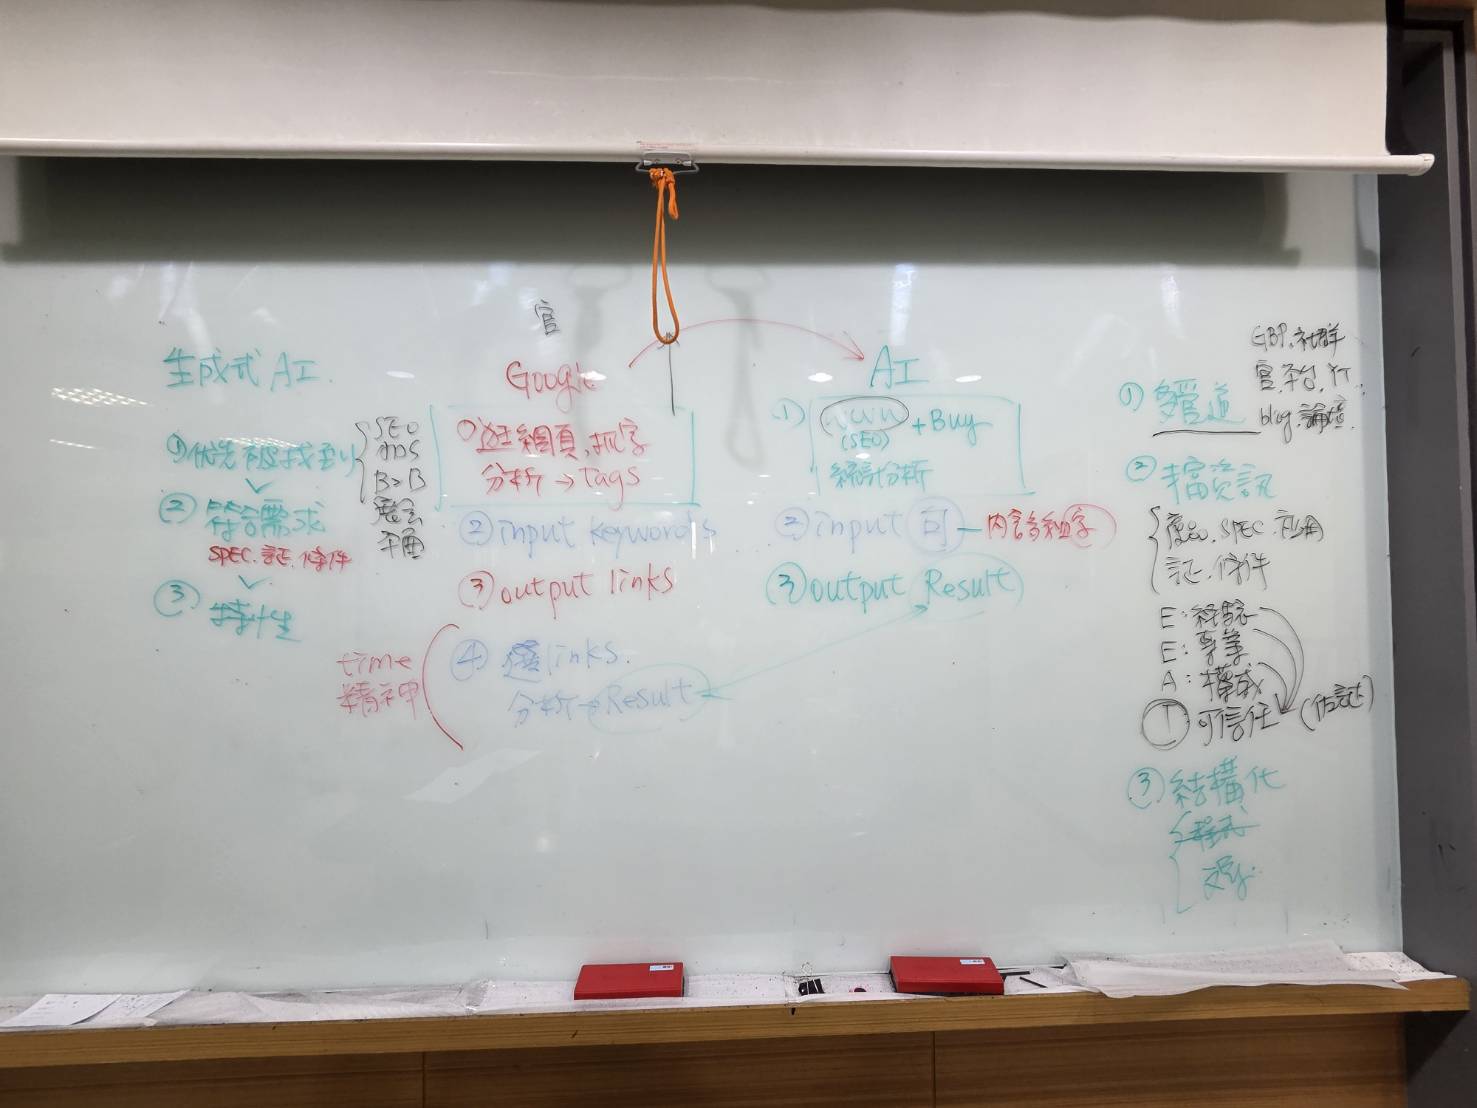 生成式 AI
①优先被找到
SEO
ads
B2B
展会
平面
② 符合需求
SPEC.証.條件
③ 特性
官
Google
①逛網頁,抓字
分析→Tags
② input keywords
③ output links
④ 選links.
分析→Result
time
精神
AI
① www + Buy
(SEO)
統計分析
② input 句 — 內含多種字
③ output Result
① 多管道
GBP.社群
blog.論壇
② 丰富資訊
產品.SPEC.應用
証.條件
E:經驗
E:專業
A:權威
T 可信任
(佐証)
③ 結構化
程式